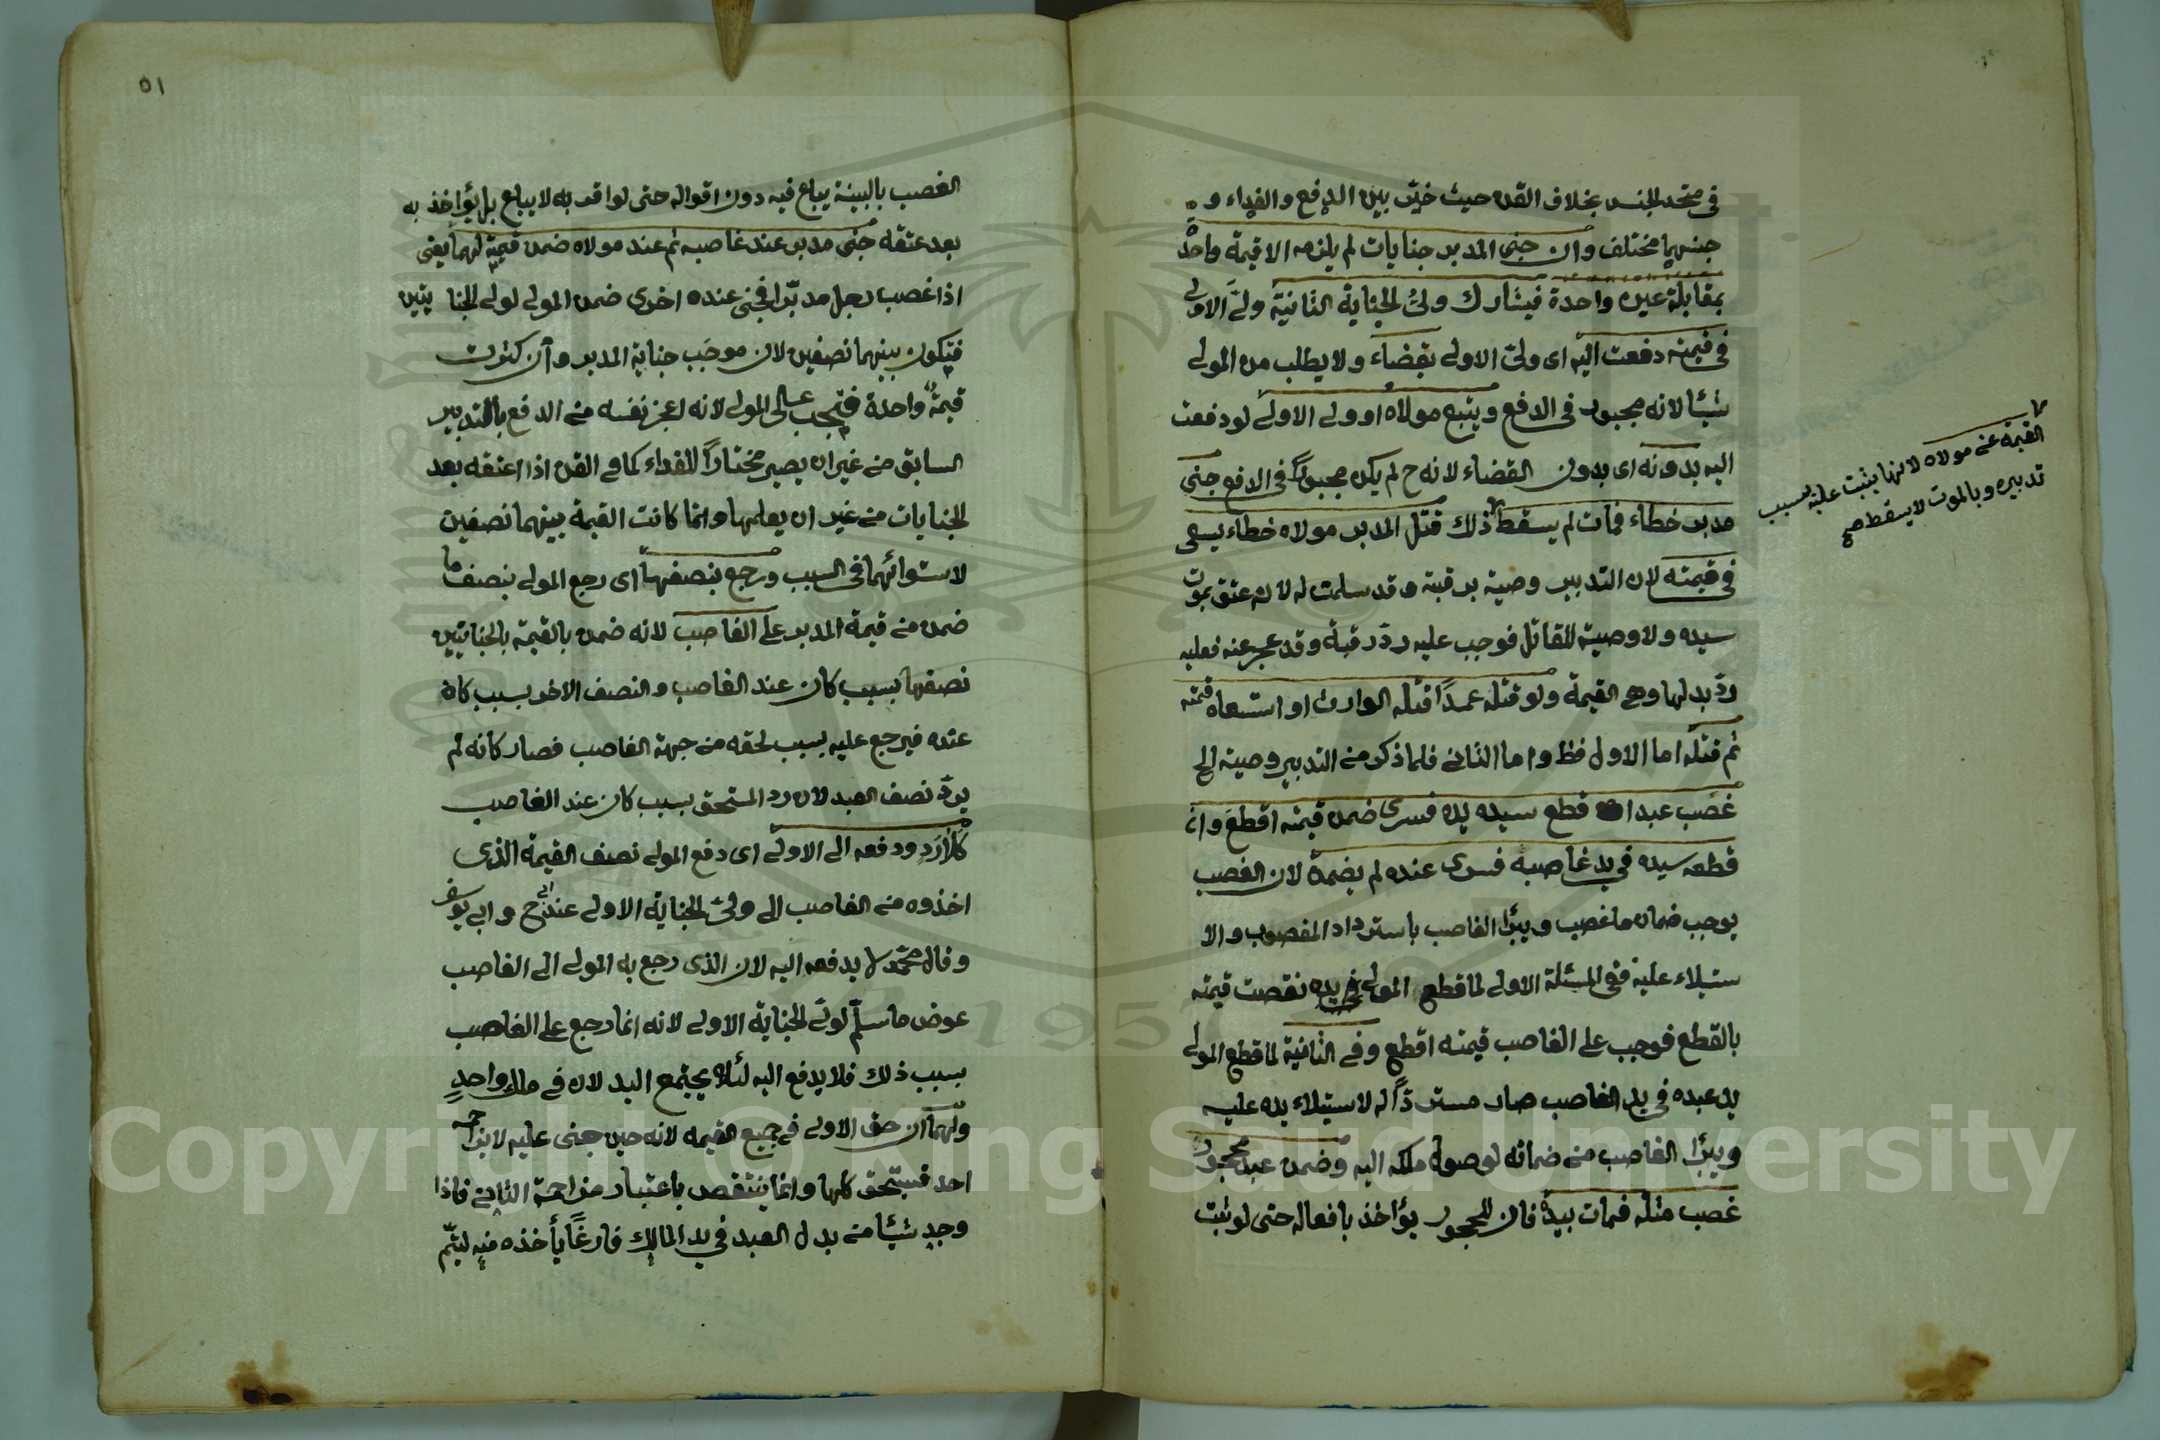 في متحد الجنس بخلاف القن حيث خيّر بين الدفع والفداء و
جنسهما مختلف وان جنى المدبر جنايات لم يلزمه الا قيمة واحدة
بمقابلة عين واحدة فيشارك وليُّ الجناية الثانية وليَّ الاولى
في قيمته دفعت اليه اى ولىّ الاولى بقضاء ولا يطلب من المولى
شيئا لانه مجبور في الدفع ويتبع مولاه او ولى الاولى لو دفعت
اليه بدونه اى بدون القضاء لانه ح لم يكن مجبورًا في الدفع جنى
مدبر خطاء فمات لم يسقط ذلك قتل المدبر مولاه خطاء يسعى
في قيمته لان التدبير وصية برقبة وقد سلمت له لانه عتق بموت
سيده ولا وصية للقاتل فوجب عليه ردّ رقبة وقد عجز عنه فعليه
ردّ بدلها وهي القيمة ولو قتله عمدًا قتله الوارث او استسعاه قيمته
ثم قتله اما الاول فظ واما الثاني فلما ذكر من التدبير وصية الخ
غصب عبدا قطع سيده يده فسرى ضمن قيمته اقطع وان
قطعه سيده في يد غاصبه فسرى عنده لم يضمن لان الغصب
يوجب ضمان ما غصب ويبرأ الغاصب باسترداد المغصوب والا
ستيلاء عليه ففي المسئلة الاولى لما قطع المولى في يده نقصت قيمته
بالقطع فوجب على الغاصب قيمته اقطع وفي الثانية لما قطع المولى
يد عبده في يد الغاصب صار مستردًّا له لاستيلاء يده عليه
ويبرأ الغاصب من ضمانه لوصول ملكه اليه وضمن عبد محجور
غصب مثله فمات بيده فان المحجور يؤاخذ بافعاله حتى لو ثبت
القيمة عن مولاه لانها يثبت عليه بسبب
تدبيره وبالموت لا يسقط صح
٥١
الغصب بالبينة يباع فيه دون اقواله حتى لو اقر به لا يباع بل يؤاخذ به
بعد عتقه جنى مدبر عند غاصبه ثم عند مولاه ضمن قيمته لهما يعنى
اذا غصب رجل مدبّرا فجنى عنده اخرى ضمن المولى لولى الجنا يتين
فيكون بينهما نصفين لان موجَب جناية المدبر وان كثرت
قيمة واحدة فتجب على المولى لانه اعجز نفسه من الدفع بالتدبير
السابق من غير ان يصير مختارًا للفداء كما في القن اذا اعتقه بعد
الجنايات من غير ان يعلمها وانما كانت القيمة بينهما نصفين
لاستوائهما في السبب ورجع بنصفها اى رجع المولى بنصف ما
ضمن من قيمة المدبر على الغاصب لانه ضمن بالقيمة بالجنايتين
نصفها بسبب كان عند الغاصب والنصف الاخر بسبب كان
عنده فيرجع عليه بسبب لحقه من جهة الغاصب فصار كانه لم
يردّ نصف العبد لان رد المستحق بسبب كان عند الغاصب
كلا رد ودفعه الى الاولى اى دفع المولى نصف القيمة الذى
اخذوه من الغاصب الى ولىّ الجناية الاولى عند ابي ح وابي يوسف
وقال محمّد لا يدفعه اليه لان الذى رجع به المولى الى الغاصب
عوض ما سلّم لولىّ الجناية الاولى لانه انما رجع على الغاصب
بسبب ذلك فلا يدفع اليه لئلا يجتمع البدلان في ملك واحدٍ
ولهما ان حق الاولى في جميع القيمه لانه حين جنى عليه لا يزاحمه
احد فيستحق كلها وانما ينتقص باعتبار مزاحمة الثاني فاذا
وجد شيئا من بدل العبد في يد المالك فارغًا يأخذه منه ليتمّ